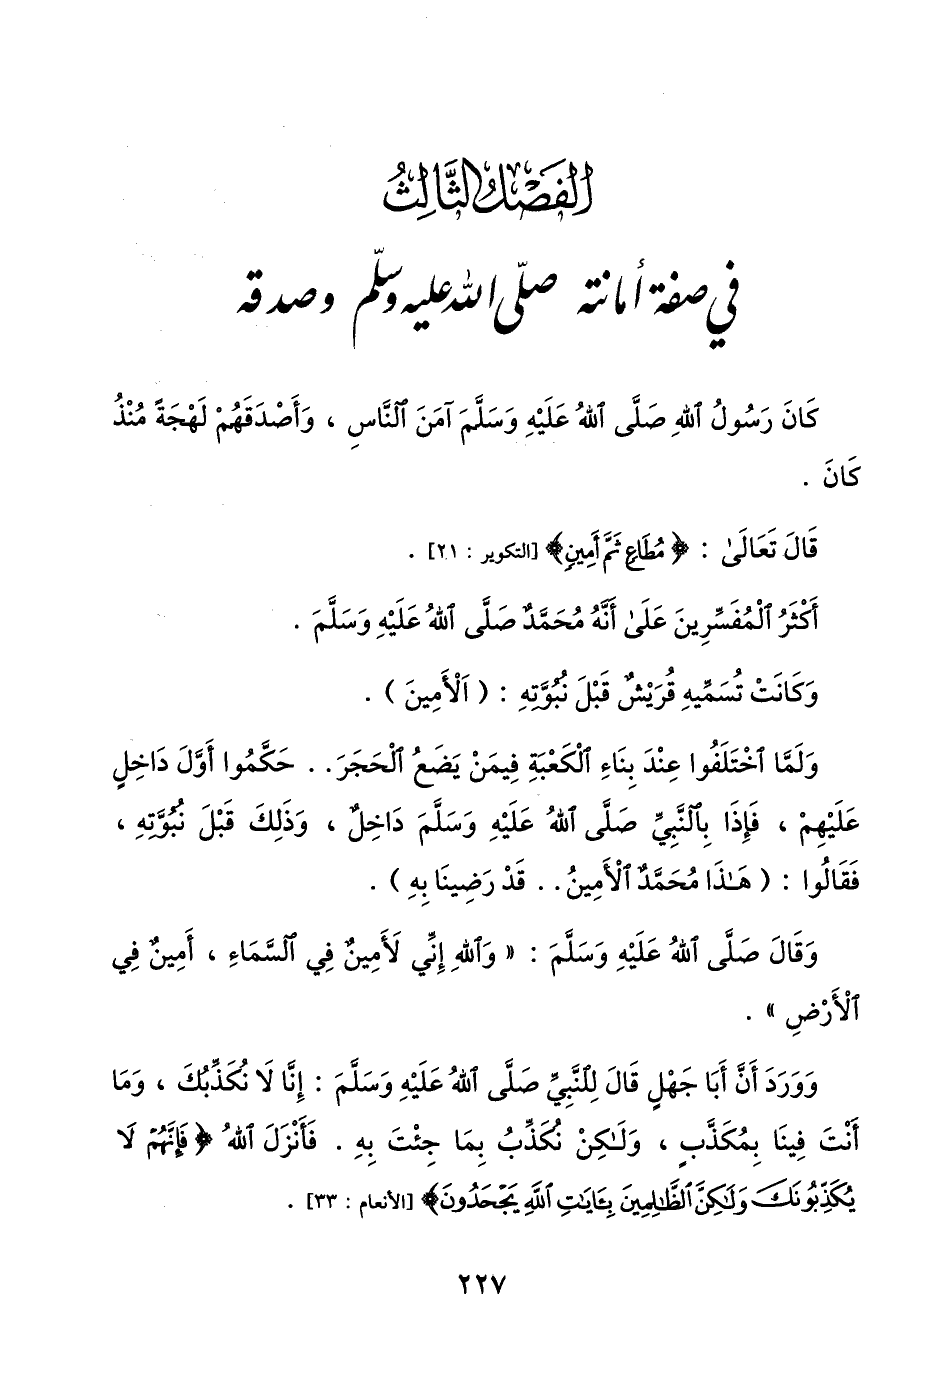 الفَصْلُ الثَّالِثُ
في صفة أمانته صلّى الله عليه وسلّم وصدقه
كَانَ رَسُولُ ٱللهِ صَلَّى ٱللهُ عَلَيْهِ وَسَلَّمَ آمَنَ ٱلنَّاسِ ، وَأَصْدَقَهُمْ لَهْجَةً مُنْذُ
كَانَ .
قَالَ تَعَالَىٰ : ﴿ مُطَاعٍ ثَمَّ أَمِينٍ﴾ [التكوير : ٢١] .
أَكْثَرُ ٱلْمُفَسِّرِينَ عَلَىٰ أَنَّهُ مُحَمَّدٌ صَلَّى ٱللهُ عَلَيْهِ وَسَلَّمَ .
وَكَانَتْ تُسَمِّيهِ قُرَيْشٌ قَبْلَ نُبُوَّتِهِ : ( ٱلْأَمِينَ ) .
وَلَمَّا ٱخْتَلَفُوا عِنْدَ بِنَاءِ ٱلْكَعْبَةِ فِيمَنْ يَضَعُ ٱلْحَجَرَ . . حَكَّمُوا أَوَّلَ دَاخِلٍ
عَلَيْهِمْ ، فَإِذَا بِٱلنَّبِيِّ صَلَّى ٱللهُ عَلَيْهِ وَسَلَّمَ دَاخِلٌ ، وَذَلِكَ قَبْلَ نُبُوَّتِهِ ،
فَقَالُوا : ( هَـٰذَا مُحَمَّدٌ ٱلْأَمِينُ . . قَدْ رَضِينَا بِهِ ) .
وَقَالَ صَلَّى ٱللهُ عَلَيْهِ وَسَلَّمَ : « وَٱللهِ إِنِّي لَأَمِينٌ فِي ٱلسَّمَاءِ ، أَمِينٌ فِي
ٱلْأَرْضِ » .
وَوَرَدَ أَنَّ أَبَا جَهْلٍ قَالَ لِلنَّبِيِّ صَلَّى ٱللهُ عَلَيْهِ وَسَلَّمَ : إِنَّا لَا نُكَذِّبُكَ ، وَمَا
أَنْتَ فِينَا بِمُكَذَّبٍ ، وَلَـٰكِنْ نُكَذِّبُ بِمَا جِئْتَ بِهِ . فَأَنْزَلَ ٱللهُ ﴿ فَإِنَّهُمْ لَا
يُكَذِّبُونَكَ وَلَـٰكِنَّ ٱلظَّـٰلِمِينَ بِـَٔايَـٰتِ ٱللَّهِ يَجْحَدُونَ﴾ [الأنعام : ٣٣] .
٢٢٧